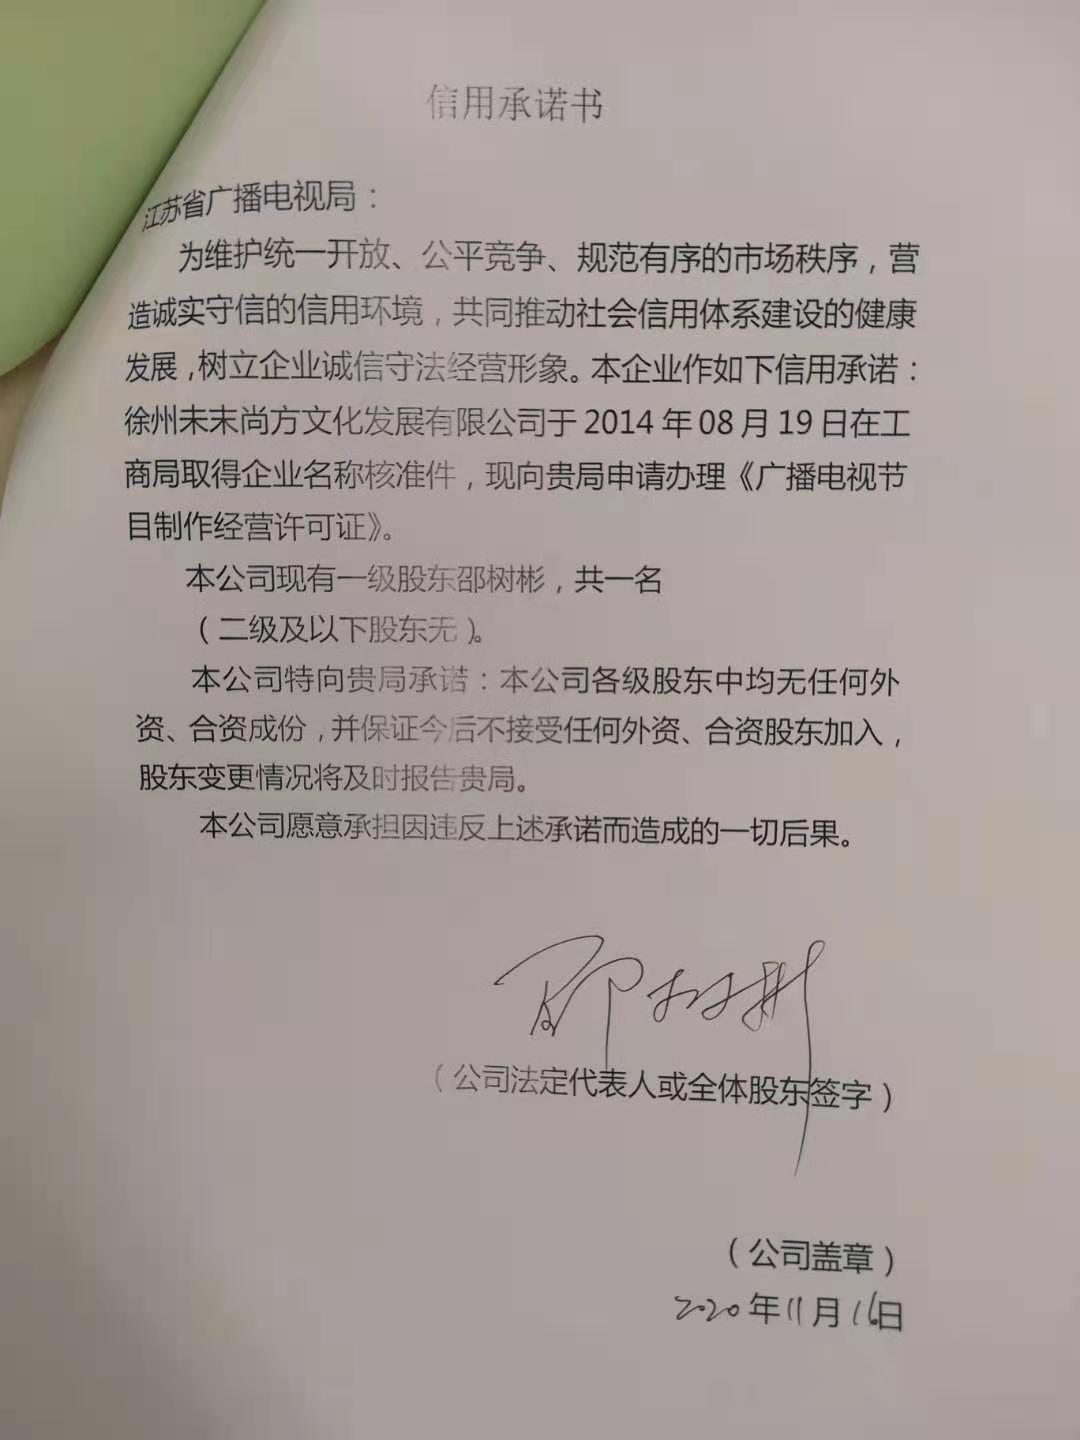 信用承诺书
江苏省广播电视局：
为维护统一开放、公平竞争、规范有序的市场秩序，营
造诚实守信的信用环境，共同推动社会信用体系建设的健康
发展，树立企业诚信守法经营形象。本企业作如下信用承诺：
徐州未末尚方文化发展有限公司于2014年08月19日在工
商局取得企业名称核准件，现向贵局申请办理《广播电视节
目制作经营许可证》。
本公司现有一级股东邵树彬，共一名
（二级及以下股东无）。
本公司特向贵局承诺：本公司各级股东中均无任何外
资、合资成份，并保证今后不接受任何外资、合资股东加入，
股东变更情况将及时报告贵局。
本公司愿意承担因违反上述承诺而造成的一切后果。
邵树彬
（公司法定代表人或全体股东签字）
（公司盖章）
2020年11月16日